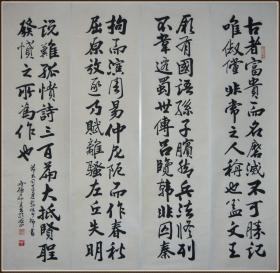 古者富貴而名磨滅不可勝記
唯俶儻非常之人稱也蓋文王
厥有國語孫子臏腳兵法修列
不韋遷蜀世傳呂覽韓非囚秦
拘而演周易仲尼厄而作春秋
屈原放逐乃賦離騷左丘失明
說難孤憤詩三百篇大抵賢聖
發憤之所為作也